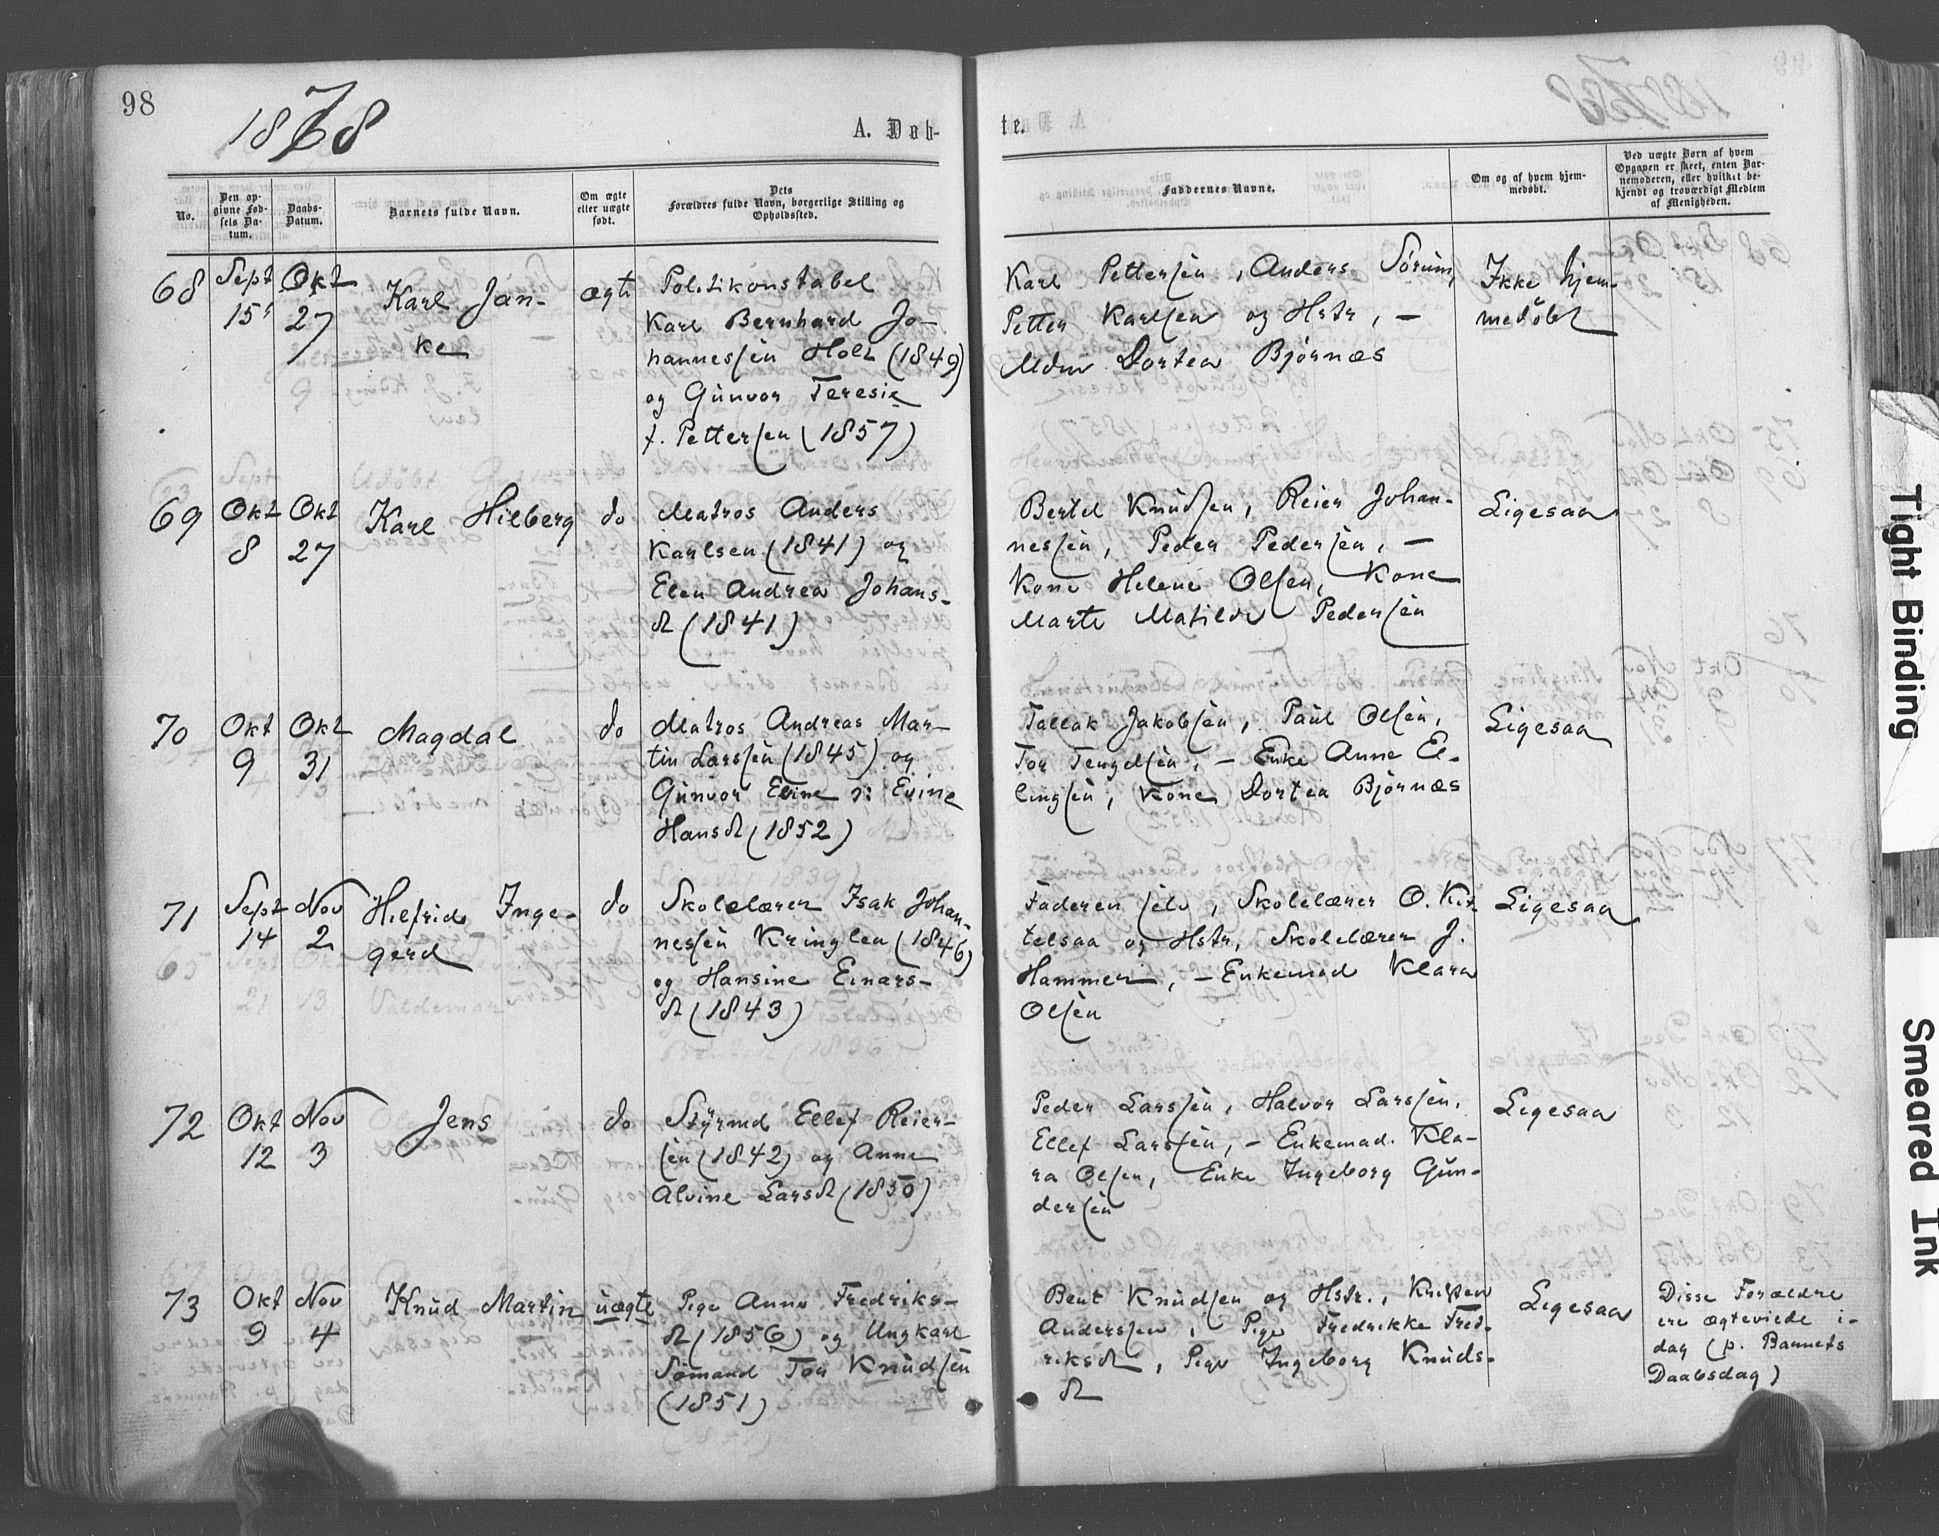 98
1878
A. Døb-
te.
No.
Den op-
givne Fød-
sels Da-
tum.
Daabs-
Datum.
Barnets fulde Navn.
Om ægte
eller uægte
født.
Dets
Forældres fulde Navn, borgerlige Stilling og
Opholdssted.
Faddernes Navne.
Om og af hvem hjem-
medøbt.
Ved uægte Børn af hvem
Opgaven er skeet, enten Bar-
nemoderen, eller hvilket be-
kjendt og troværdigt Medlem
af Menigheden.
68
Sept
15
Okt
27
Karl Jan-
ke
ægte
Politikonstabel
Karl Bernhard Jo-
hannessen Holt (1849)
og Gunvor Teresie
f. Pettersen (1857)
Karl Pettersen, Anders Sørum,
Petter Karlsen og Hstr, –
Mdm Dortea Bjørnæs
Ikke hjem-
medøbt
69
Okt
8
Okt
27
Karl Hilberg
do
Matros Anders
Karlsen (1841) og
Elen Andrea Johans-
dt (1841)
Bertel Knudsen, Reier Johan-
nessen, Peder Pedersen, –
Kone Helene Olsen, Kone
Marte Matilde Pedersen
Ligesaa
70
Okt
9
Okt
31
Magdal
do
Matros Andreas Mar-
tin Larssen (1845) og
Gunvor Eline ɔ: Evine
Hansdt (1852)
Tallak Jakobsen, Paul Olsen,
Tor Tengelsen, – Enke Anne El-
lingsen, Kone Dortea Bjørnæs
Ligesaa
71
Sept
14
Nov
2
Hilfrid Inge-
gerd
do
Skolelærer Isak Johan-
nessen Kringlen (1846)
og Hansine Einars-
dt (1843)
Faderen selv, Skolelærer O. Kit-
telsaa og Hstr, Skolelærer J.
Hammer, – Enkemad Klara
Olsen
Ligesaa
72
Okt
12
Nov
3
Jens
do
Styrmd Ellef Reier-
sen (1842) og Anne
Alvine Larsdt (1850)
Peder Larssen, Halvor Larssen,
Ellef Larssen, – Enkemad. Kla-
ra Olsen, Enke Ingeborg Gun-
dersen
Ligesaa
73
Okt
9
Nov
4
Knud Martin
uægte
Pige Anne Fredriks-
dt (1856) og Ungkarl
Sømand Tor Knudsen
(1851)
Bent Knudsen og Hstr., Knud
Anderssen, Pige Fredrikke Fred-
riksdt, Pige Ingeborg Knuds-
dt
Ligesaa
Disse Forældre
ere ægteviede i-
dag (p. Barnets
Daabsdag)
Tight Binding
Smeared Ink